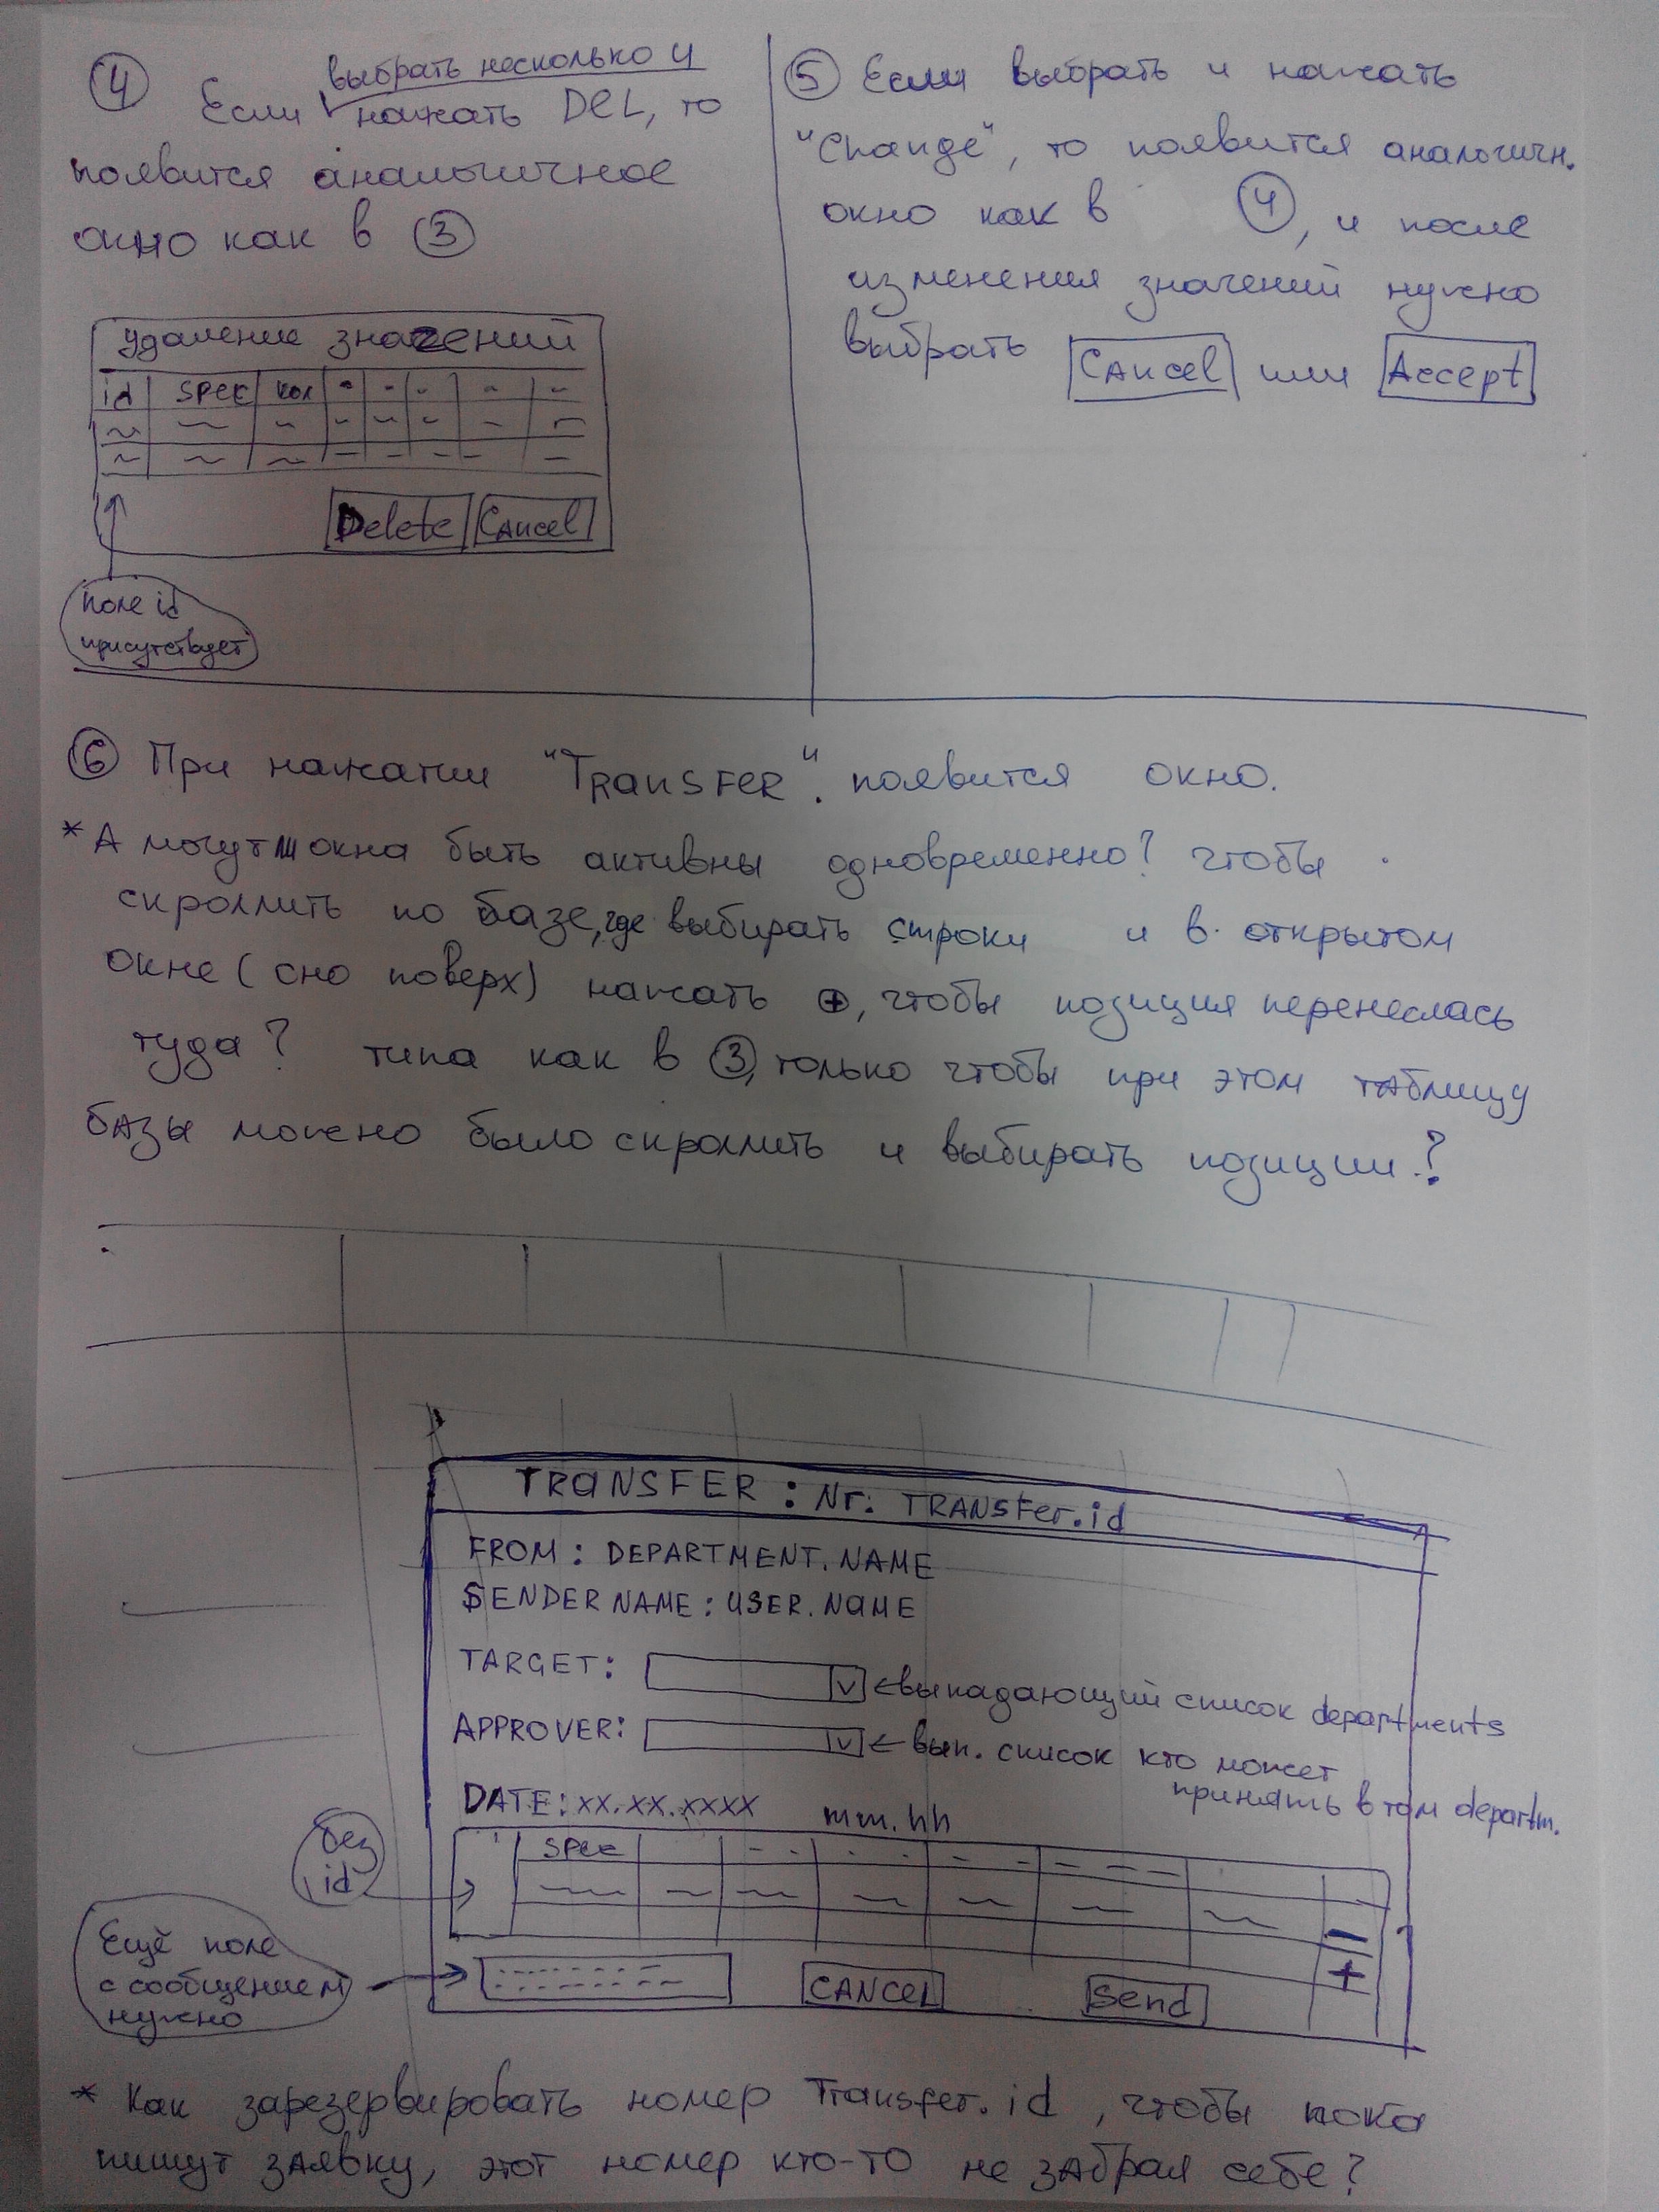 4 Если выбрать несколько и
нажать DEL, то
появится аналогичное
окно как в 3
Удаление значений
id spec кол
Delete Cancel
поле id
присутствует
5 Если выбрать и нажать
"Change", то появится аналогичн.
окно как в 4, и после
изменения значений нужно
выбрать Cancel или Accept
6 При нажатии "TRANSFER". появится окно.
* А могут ли окна быть активны одновременно? чтобы
скроллить по базе, где выбирать строки и в открытом
окне (оно поверх) нажать +, чтобы позиция перенеслась
туда? типа как в 3, только чтобы при этом таблицу
базы можно было скроллить и выбирать позиции?
TRANSFER : Nr. TRANSFER.id
FROM: DEPARTMENT.NAME
SENDER NAME: USER.NAME
TARGET: V ← выпадающий список departments
APPROVER: V ← вып. список кто может
принять в том departm.
DATE: XX.XX.XXXX mm.hh
без
id
spec
−
+
Ещё поле
с сообщением
нужно
CANCEL Send
* Как зарезервировать номер Transfer.id, чтобы пока
пишут заявку, этот номер кто-то не забрал себе?